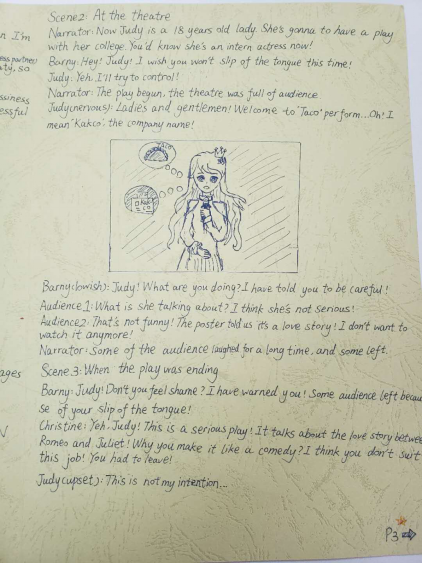 Scene2: At the theatre
Narrator: Now Judy is a 18 years old lady. She's gonna to have a play
with her college. You'd know she's an intern actress now!
Barny: Hey! Judy! I wish you won't slip of the tongue this time!
Judy: Yeh. I'll try to control!
Narrator: The play begun, the theatre was full of audience.
Judy(nervous): Ladies and gentlemen! Welcome to 'Taco' perform...Oh! I
mean 'Kakco'. the company name!
Barny(lowish): Judy! What are you doing? I have told you to be careful!
Audience 1: What is she talking about? I think she's not serious!
Audience2: That's not funny! The poster told us it's a love story! I don't want to
watch it anymore!
Narrator: Some of the audience laughed for a long time, and some left.
Scene3: When the play was ending.
Barny: Judy! Don't you feel shame? I have warned you! Some audience left becau
se of your slip of the tongue!
Christine: Yeh, Judy! This is a serious play! It talks about the love story betwee
Romeo and Juliet! Why you make it like a comedy? I think you don't suit
this job! You had to leave!
Judy(upset): This is not my intention...
P3